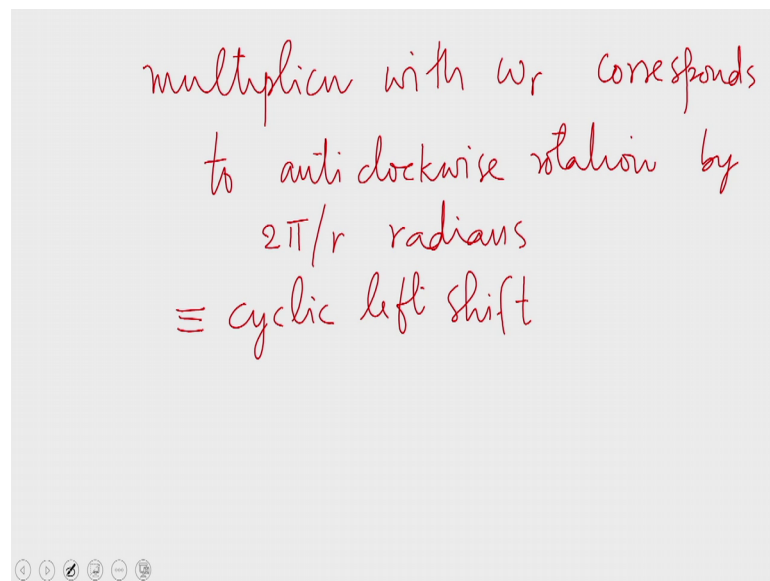 multiplicn with ωr corresponds
to anticlockwise rotation by
2π/r radians
≡ cyclic left shift